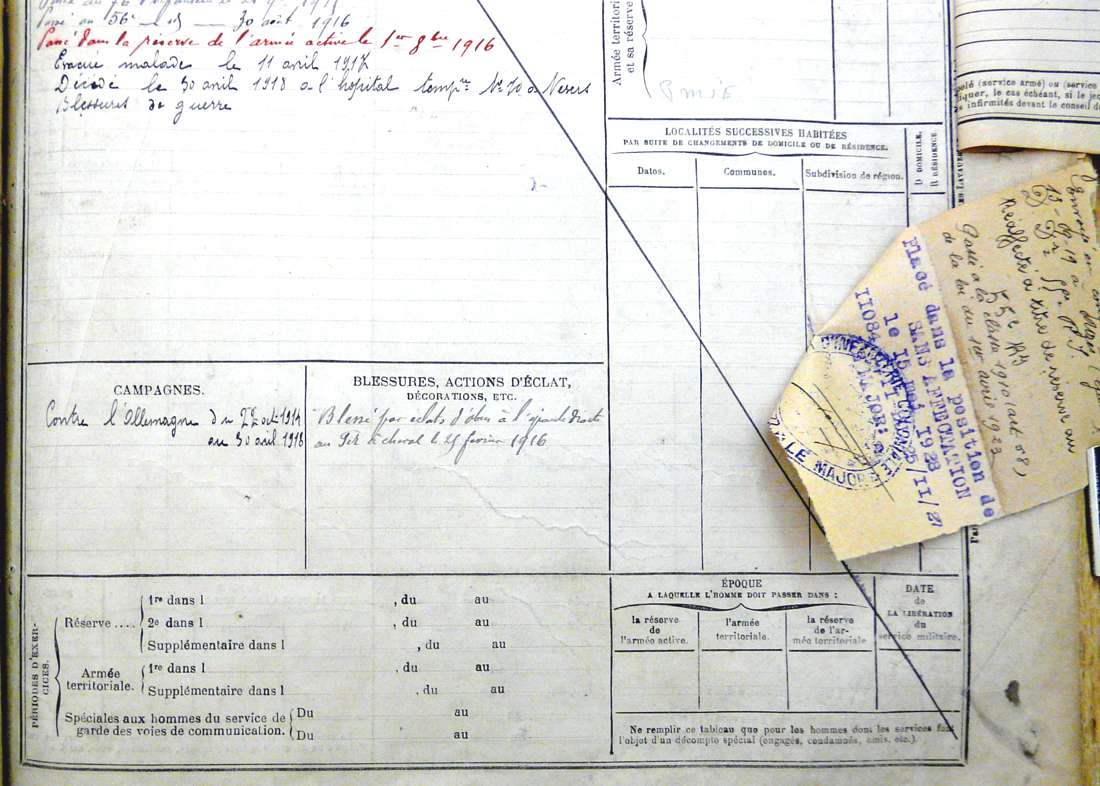 Passé au 56e - 30 août 1916
Passé dans la réserve de l'armée active le 1er 8bre 1916
Évacué malade le 11 avril 1917
Décédé le 30 avril 1918 à l'hôpital tempre No 70 à Nevers
Blessures de guerre
Armée territoriale
et sa réserve
LOCALITÉS SUCCESSIVES HABITÉES
PAR SUITE DE CHANGEMENTS DE DOMICILE OU DE RÉSIDENCE.
Dates.
Communes.
Subdivision de région.
D DOMICILE,
R RÉSIDENCE.
(service armé) ou (service
le cas échéant, si le
infirmités devant le conseil
13-09-19
Réaffecté à titre de réserve au
Passé à la classe 1910 (art 58)
de la loi du 1er avril 1923
Placé dans la position de
SANS AFFECTATION
le 15 mai 1928
LE MAJOR
CAMPAGNES.
Contre l'Allemagne du 22 oct 1914
au 30 avril 1918
BLESSURES, ACTIONS D'ÉCLAT,
DÉCORATIONS, ETC.
Blessé par éclats d'obus à l'épaule droite
à cheval le 25 février 1916
PÉRIODES D'EXER-
CICES.
Réserve ....
1re dans l , du au
2e dans l , du au
Supplémentaire dans l , du au
Armée
territoriale.
1re dans l , du au
Supplémentaire dans l , du au
Spéciales aux hommes du service de
garde des voies de communication.
Du au
Du au
ÉPOQUE
A LAQUELLE L'HOMME DOIT PASSER DANS :
la réserve
de
l'armée active.
l'armée
territoriale.
la réserve
de l'ar-
mée territoriale
DATE
de
LA LIBÉRATION
du
service militaire.
Ne remplir ce tableau que pour les hommes dont les services font
l'objet d'un décompte spécial (engagés, condamnés, omis, etc.).